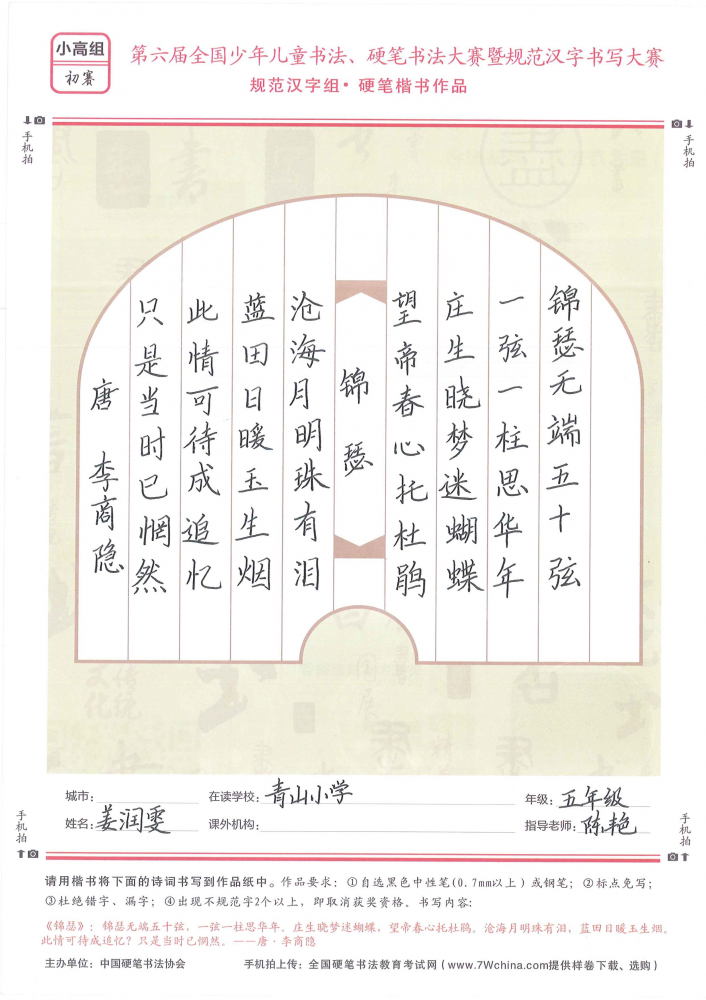 小高组
初赛
第六届全国少年儿童书法、硬笔书法大赛暨规范汉字书写大赛
规范汉字组·硬笔楷书作品
手机拍
手机拍
锦瑟无端五十弦
一弦一柱思华年
庄生晓梦迷蝴蝶
望帝春心托杜鹃
锦瑟
沧海月明珠有泪
蓝田日暖玉生烟
此情可待成追忆
只是当时已惘然
唐 李商隐
城市: 在读学校: 青山小学 年级: 五年级
姓名: 姜润雯 课外机构: 指导老师: 陈艳
手机拍
手机拍
请用楷书将下面的诗词书写到作品纸中。作品要求：①自选黑色中性笔(0.7mm以上)或钢笔；②标点免写；
③杜绝错字、漏字；④出现不规范字2个以上，即取消获奖资格。书写内容：
《锦瑟》：锦瑟无端五十弦，一弦一柱思华年。庄生晓梦迷蝴蝶，望帝春心托杜鹃。沧海月明珠有泪，蓝田日暖玉生烟。
此情可待成追忆？只是当时已惘然。——唐·李商隐
主办单位：中国硬笔书法协会 手机拍上传：全国硬笔书法教育考试网（www.7Wchina.com提供样卷下载、选购）